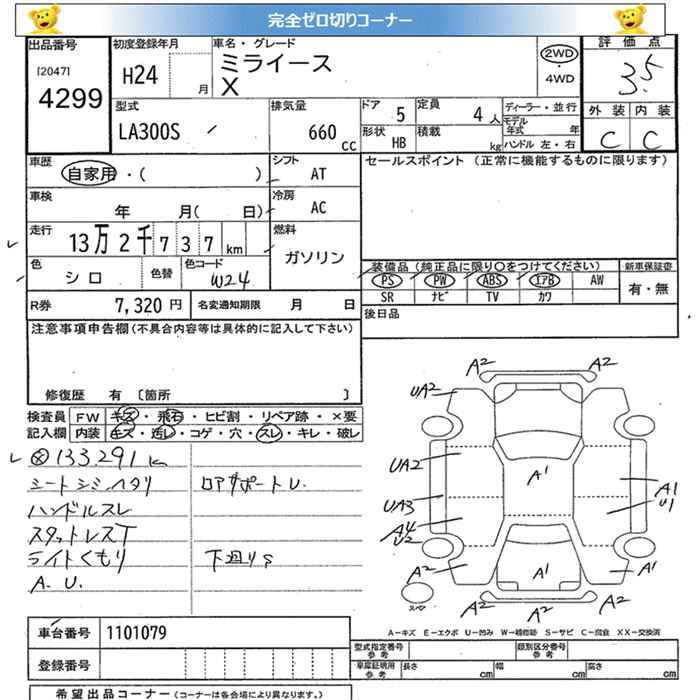 完全ゼロ切りコーナー
出品番号
[2047]
4299
初度登録年月
H24
月
車名・グレード
ミライース
X
2WD
・
4WD
評価点
3.5
外装 内装
C C
型式
LA300S
排気量
660
CC
ドア 5
定員 4 人
形状 HB
積載 kg
ディーラー・並行
モデル
年式 年
ハンドル 左・右
車歴
自家用・( )
シフト
AT
セールスポイント (正常に機能するものに限ります)
車検
年 月( 日)
冷房
AC
走行
13万2千737km
燃料
ガソリン
色
シロ
色替
色コード
W24
装備品(純正品に限り〇をつけてください)
PS PW ABS エアB AW
SR ナビ TV カワ
新車保証書
有・無
R券
7,320 円
名変通知期限 月 日
後日品
注意事項申告欄(不具合内容等は具体的に記入して下さい)
修復歴 有 〔箇所 〕
検査員
記入欄
FW キズ・飛石・ヒビ割・リペア跡・×要
内装 キズ・汚レ・コゲ・穴・スレ・キレ・破レ
133,291 km
シートシミ、ヘタリ
ロアサポートU.
ハンドルスレ
スタットレスT
ライトくもり
下廻りS
A.U.
A2 A2
UA2
UA2
A1
UA3
A1
U1
A4
U2
A2
A1
A1
スペア
A2 A2
A-キズ E-エクボ U-凹み W-補修跡 S-サビ C-腐食 XX-交換済
車台番号
1101079
登録番号
型式指定番号
参考
類別区分番号
参考
車庫証明用
参考
長さ cm
幅 cm
高さ cm
希望出品コーナー(コーナーは各会場により異なります。)